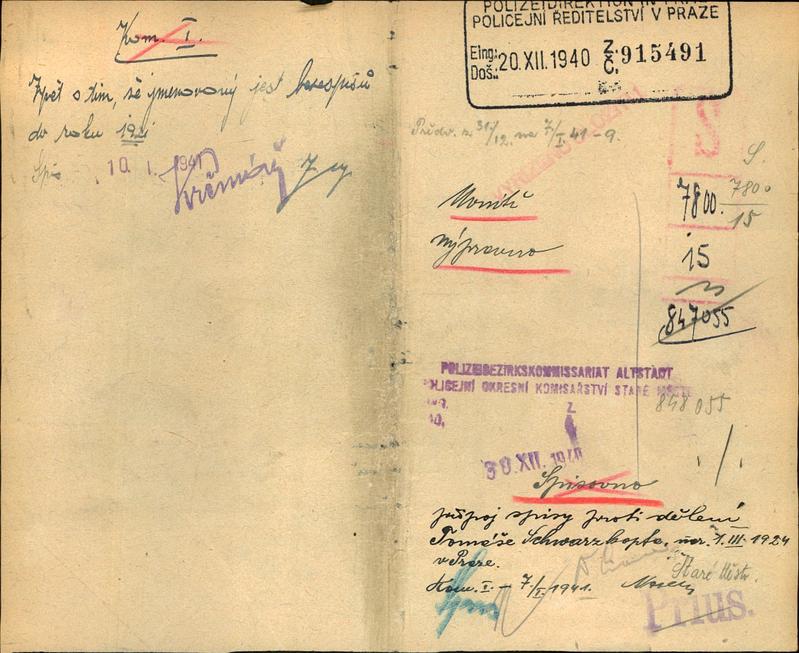 Kom. I.
Zpět s tím, že jmenovaný jest bezespisů
do roku
Spis
10. I. 1941
POLIZEIDIREKTION IN
POLICEJNÍ ŘEDITELSTVÍ V PRAZE
Eing.:
Doš.: 20.XII.1940 Z. Č. 915491
Předv. z 31/12. na 7/I. 41 - 9.
S
S.
7800.
7800
15
15
847055
výpravno
POLIZEIBEZIRKSKOMMISSARIAT ALTSTADT
POLICEJNÍ OKRESNÍ KOMISAŘSTVÍ STARÉ MĚSTO
Z
848055
30 XII. 1940
./.
Spisovno
připoj spisy proti dělení
Tomáše Schwarzkopfa, nar. 1. III. 1924
v Praze.
Staré Město.
Kom. I. - 7/I. 1941.
Prius.